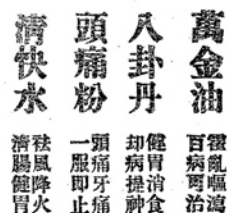 萬金油
霍亂嘔瀉
百病可治
八卦丹
健胃消食
却病提神
頭痛粉
頭痛牙痛
一服即止
清快水
祛風降火
清腸健胃